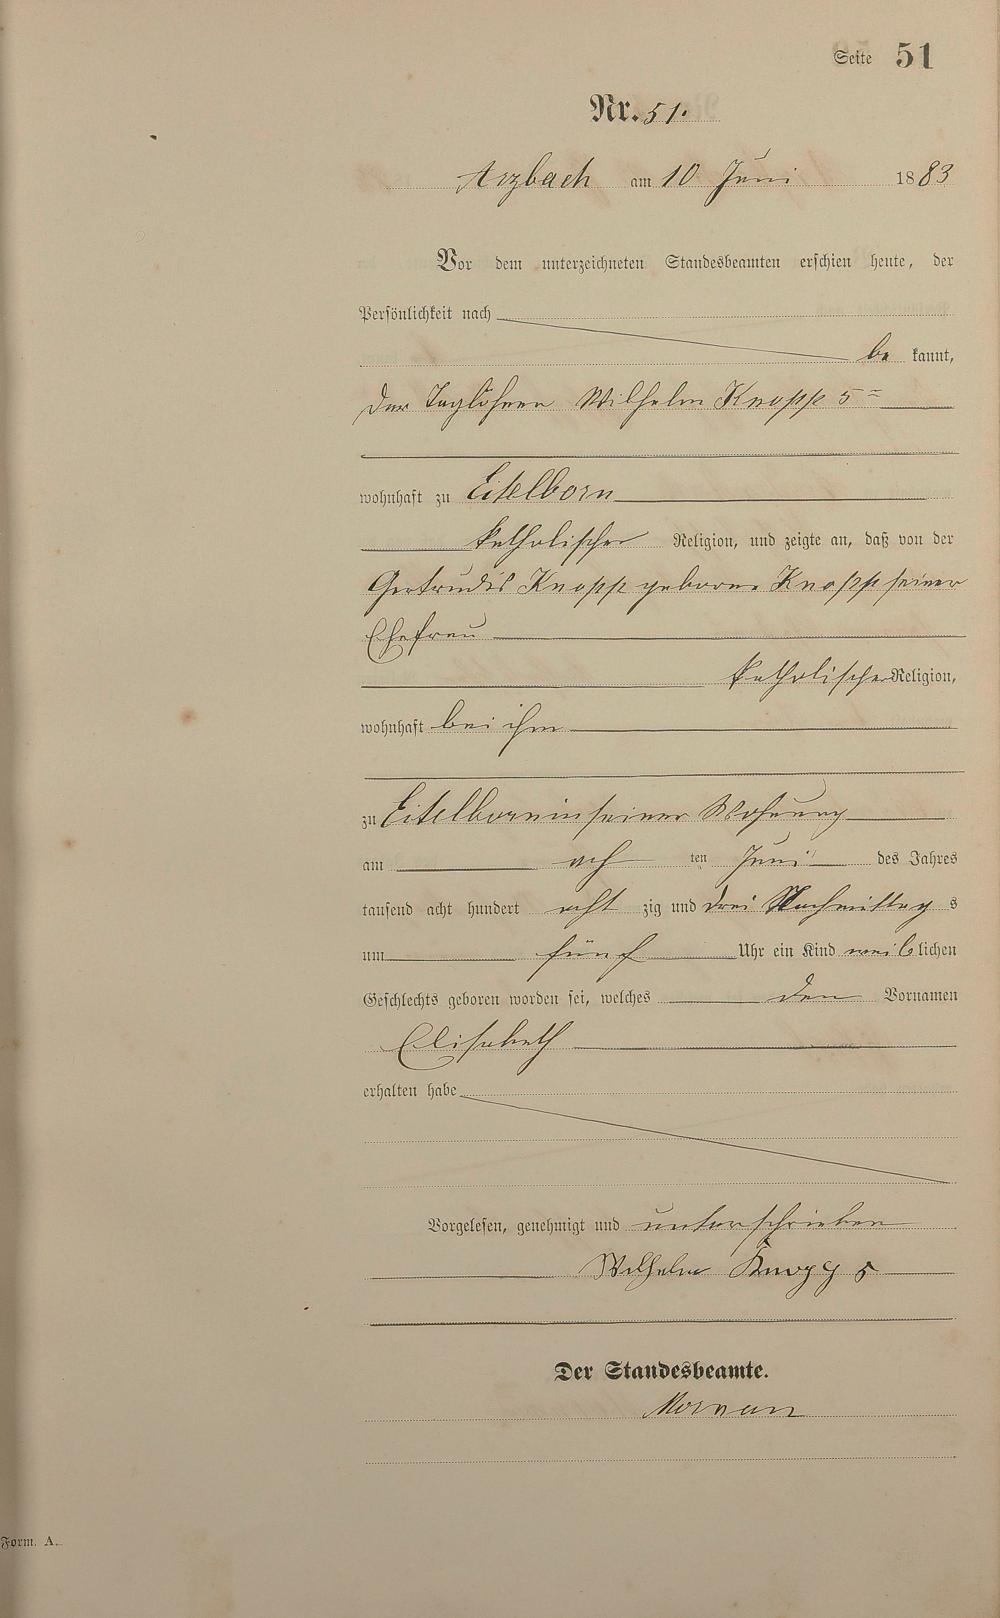 Seite 51
Nr. 51.
Arzbach am 10 Juni 1883
Vor dem unterzeichneten Standesbeamten erschien heute, der
Persönlichkeit nach
be kannt,
der Taglöhner Wilhelm Knopp 5
wohnhaft zu Eitelborn
katholischer Religion, und zeigte an, daß von der
Gertrudis Knopp geborne Knopp seiner
Ehefrau
katholischer Religion,
wohnhaft bei ihm
zu Eitelborn in seiner Wohnung
am ach ten Juni des Jahres
tausend acht hundert acht zig und drei Nachmittag s
um fünf Uhr ein Kind weiblichen
Geschlechts geboren worden sei, welches den Vornamen
Elisabeth
erhalten habe
Vorgelesen, genehmigt und unterschrieben
Wilhelm Knopp 5
Der Standesbeamte.
Form. A.